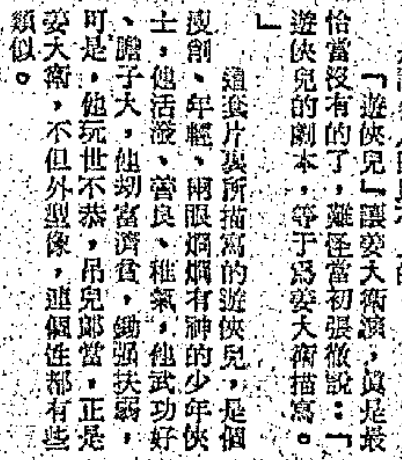 「遊俠兒」讓姜大衛演，真是最
恰當沒有的了，難怪當初張徹說：「
遊俠兒的劇本，等于爲姜大衛描寫。
」
這套片裏所描寫的遊俠兒，是個
瘦削、年輕、兩眼烱烱有神的少年俠
士，他活潑、善良、稚氣，他武功好
、膽子大，他刼富濟貧，鋤强扶弱，
可是，他玩世不恭，吊兒郎當，正是
姜大衛，不但外型像，連個性都有些
類似。